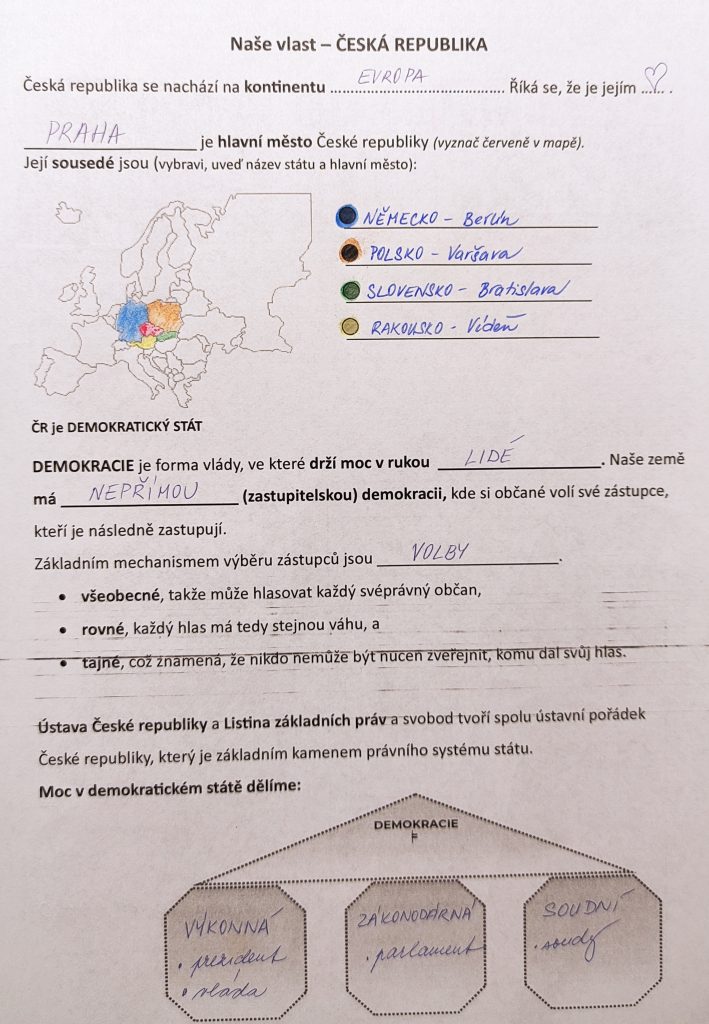 Naše vlast – ČESKÁ REPUBLIKA
Česká republika se nachází na kontinentu EVROPA. Říká se, že je jejím ♡.
PRAHA je hlavní město České republiky (vyznač červeně v mapě).
Její sousedé jsou (vybravi, uveď název státu a hlavní město):
NĚMECKO - Berlín
POLSKO - Varšava
SLOVENSKO - Bratislava
RAKOUSKO - Vídeň
ČR je DEMOKRATICKÝ STÁT
DEMOKRACIE je forma vlády, ve které drží moc v rukou LIDÉ. Naše země
má NEPŘÍMOU (zastupitelskou) demokracii, kde si občané volí své zástupce,
kteří je následně zastupují.
Základním mechanismem výběru zástupců jsou VOLBY.
• všeobecné, takže může hlasovat každý svéprávný občan,
• rovné, každý hlas má tedy stejnou váhu, a
• tajné, což znamená, že nikdo nemůže být nucen zveřejnit, komu dal svůj hlas.
Ústava České republiky a Listina základních práv a svobod tvoří spolu ústavní pořádek
České republiky, který je základním kamenem právního systému státu.
Moc v demokratickém státě dělíme:
DEMOKRACIE
VÝKONNÁ
• prezident
• vláda
ZÁKONODÁRNÁ
• parlament
SOUDNÍ
• soudy